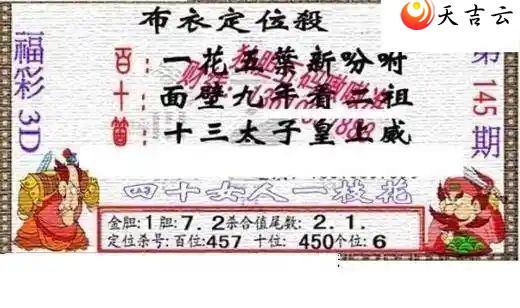 天吉云
布衣定位殺
福彩3D
第145期
百:一花五葉新吩咐
十:面壁九年看二祖
個:十三太子皇上威
四十女人一枝花
金胆:1胆:7.2杀合值尾数:2.1.
定位杀号:百位:457 十位:450个位:6